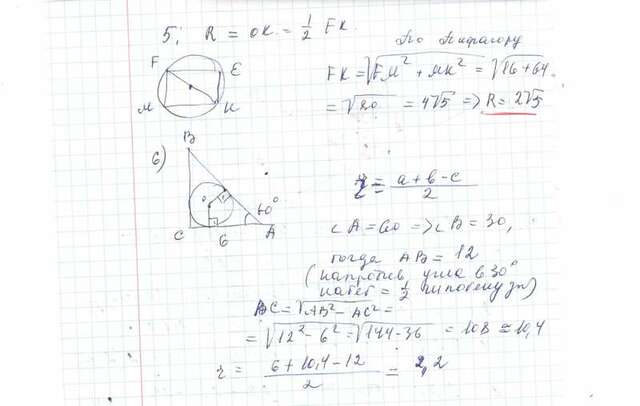 5; R = OK = 1/2 FK.
По Пифагору
FK = √FM² + MK² = √16+64
= √80 = 4√5 => R = 2√5
F E
M K
6)
B
O
60°
C 6 A
r = a+b-c / 2
∠A = 60 => ∠B = 30,
тогда AB = 12
(напротив угла в 30°
катет = 1/2 гипотенузы)
BC = √AB² - AC² =
= √12² - 6² = √144-36 = 108 ≈ 10,4
r = 6+10,4-12 / 2 = 2,2